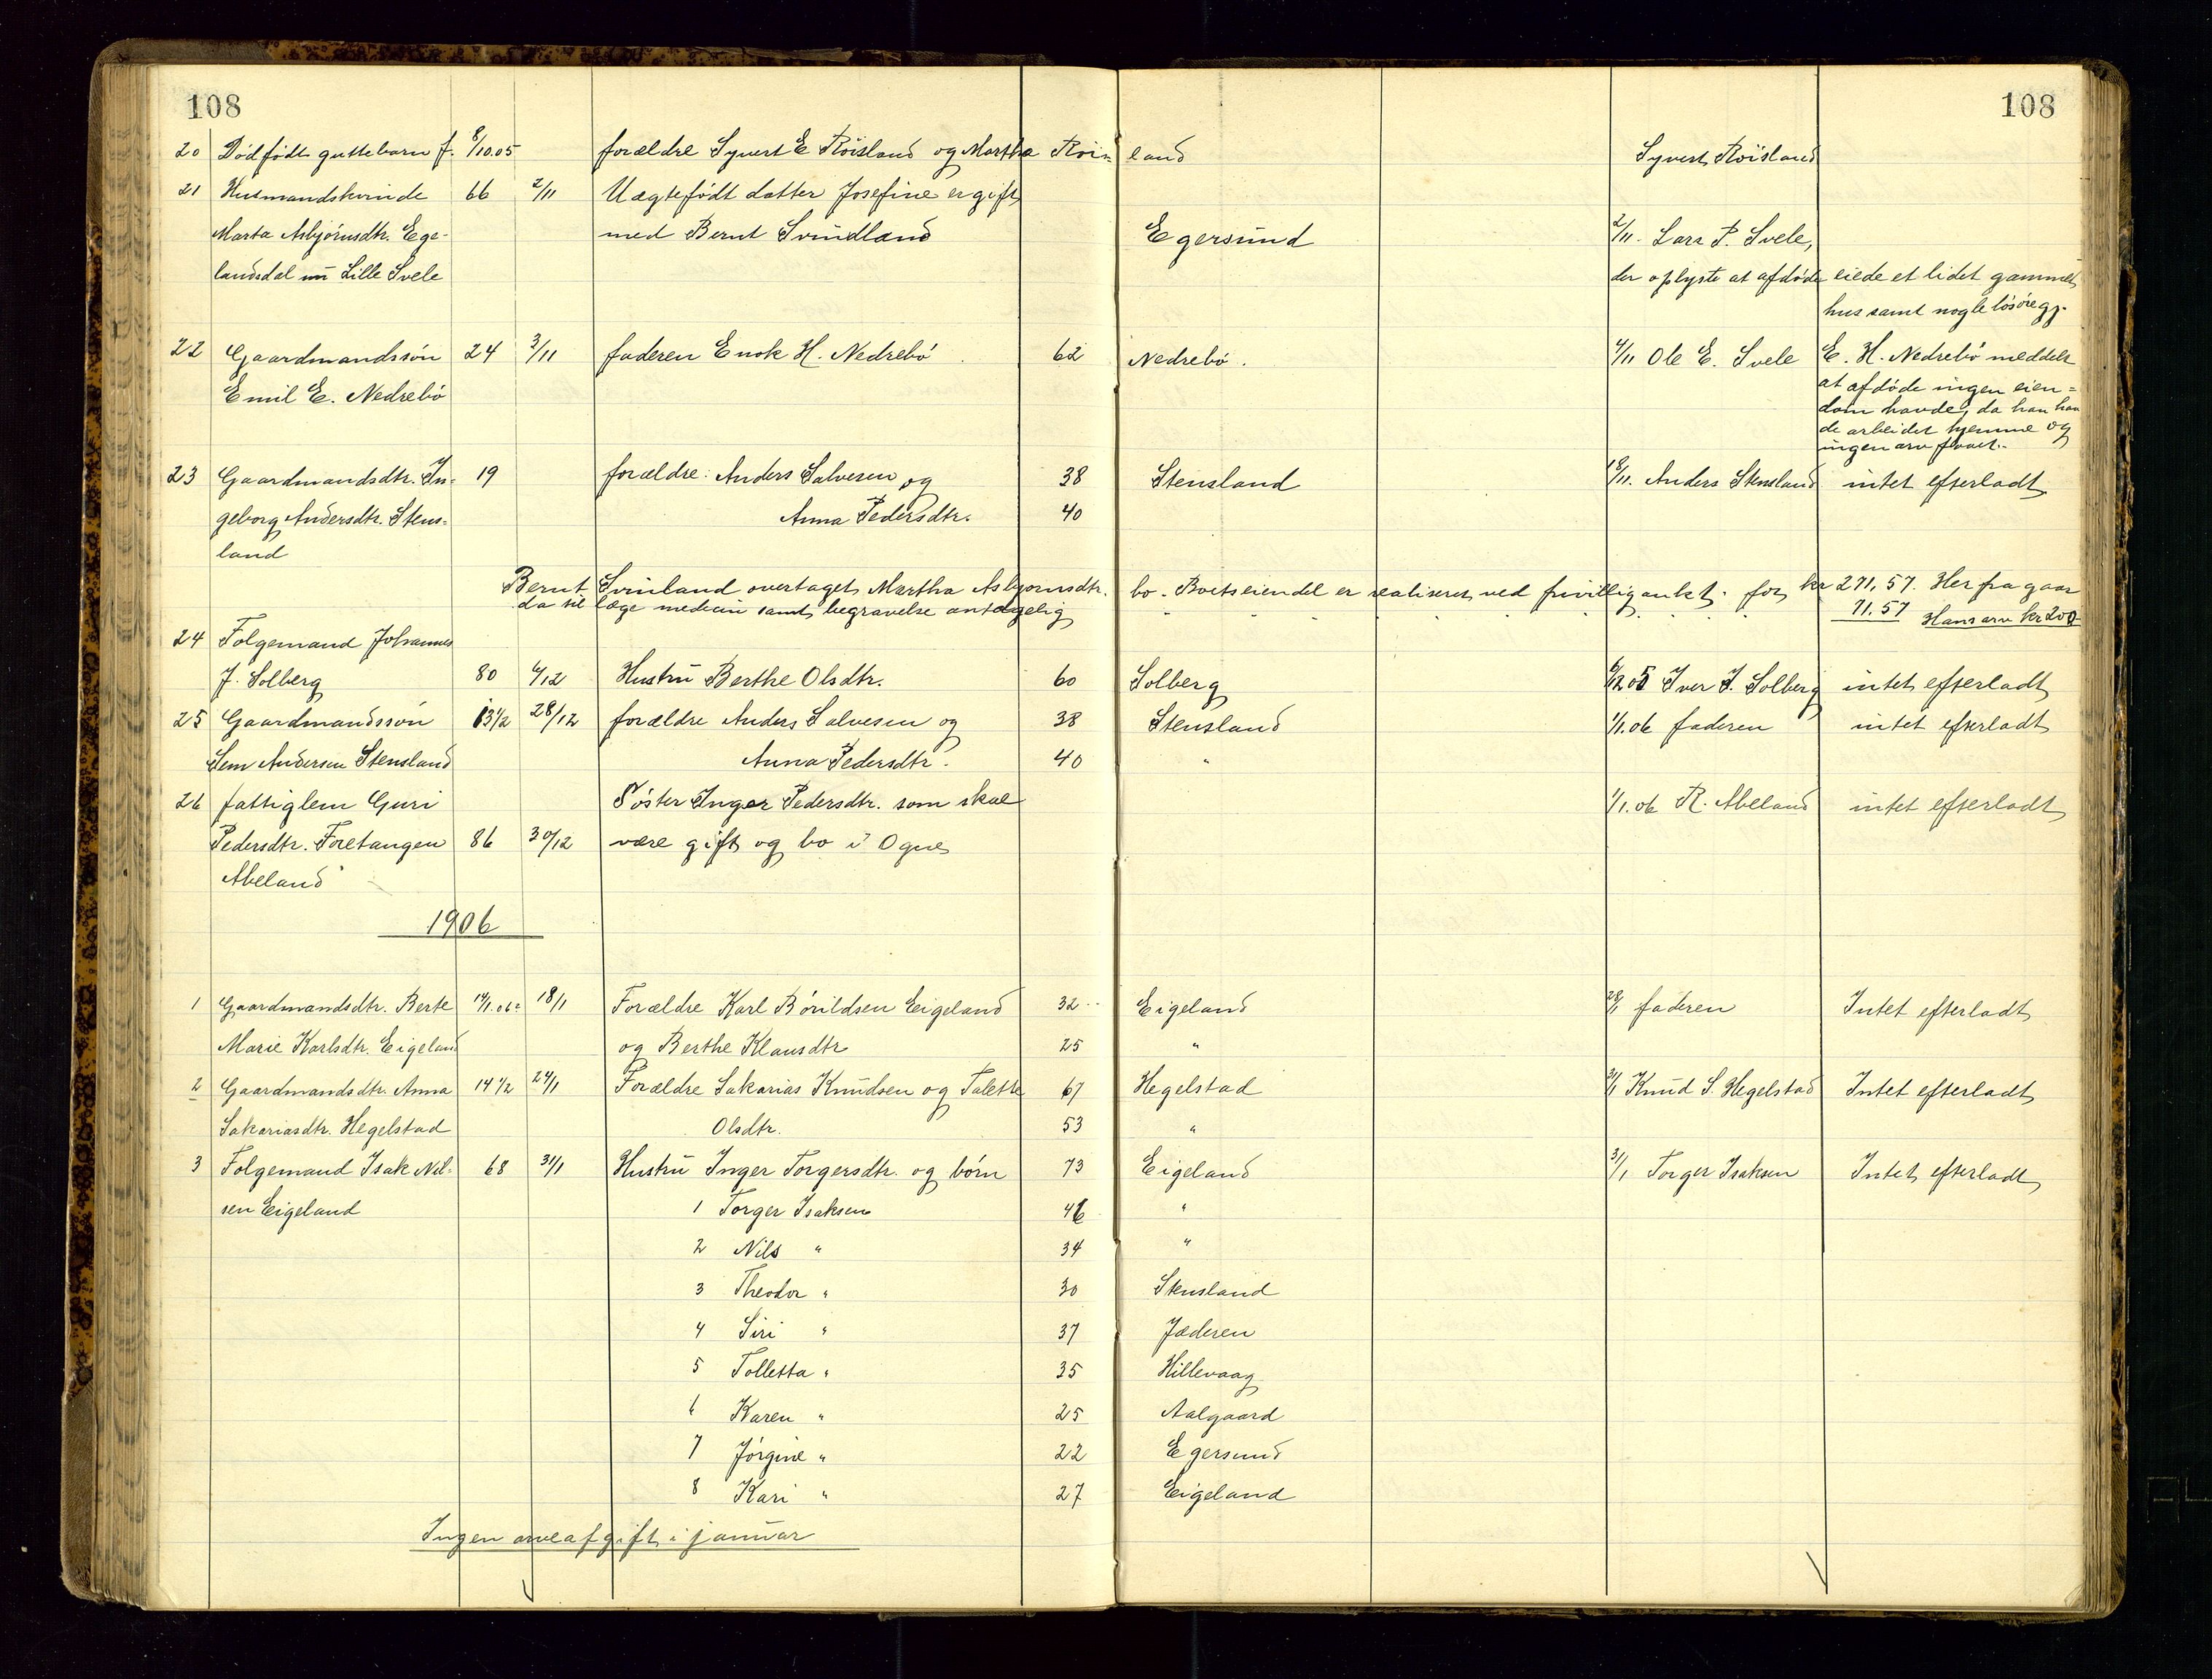 108 108
20 Dödfödt guttebarn f. 8/10.05 forældre Syvert E Röisland og Martha Röisland Syvert Röisland
21 Husmandskvinde 66 2/11 Uægtefødt datter Josefine er gift
Marta Asbjörnsdtr. Ege- med Bernt Svindland Egersund 2/11. Lars P. Svele,
landsdal nu Lille Svele der oplyste at afdöde eiede et lidet gammelt
hus samt nogle lösöregj.
22 Gaardmandssön 24 3/11 faderen Enok H. Nedrebö 62 Nedrebö. 4/11 Ole E. Svele E. H. Nedrebö meddelr
Emil E. Nedrebö at afdöde ingen eien=
dom havde, da han hav
de arbeidet hjemme og
ingen arv faaet.
23 Gaardmandsdtr. In- 19 forældre: Anders Salvesen og 38 Stensland 18/11. Anders Stensland intet efterladt
geborg Andersdtr. Stens- Anna Pedersdtr. 40
land
Bernt Svinland overtaget Martha Asbjornsdtr. bo. Boets eiendel er realiseret ved frivillig aukt. for kr 271,57. Herfra gaar
da til læge medicin samt begravelse antagelig 71.57 Hans arv kr 200
24 Folgemand Johannes
J. Solberg 80 4/12 Hustru Berthe Olsdtr. 60 Solberg 6/12 05 Iver J. Solberg intet efterladt
25 Gaardmandssön 13 1/2 28/12 forældre Anders Salvesen og 38 Stensland 1/1.06 faderen intet efterladt
Sem Andersen Stensland Anna Pedersdtr. 40 "
26 fattiglem Guri Söster Inger Pedersdtr. som skal 1/1.06 R. Abeland intet efterladt
Pedersdtr. Foretangen 86 30/12 være gift og bo i Ogne
Abeland
1906
1 Gaardmandsdtr. Berte 14/1.06 18/1 Forældre Karl Börildsen Eigeland 32 Eigeland 28/1 faderen Intet efterladt
Marie Karlsdtr. Eigeland og Berthe Klausdtr 25 "
2 Gaardmandsdtr. Anna 14 1/2 24/1 Forældre Sakarias Knudsen og Talette 67 Hegelstad 31/1 Knud S. Hegelstad Intet efterladt
Sakariasdtr. Hegelstad Olsdtr. 53 "
3 Folgemand Isak Nil- 68 31/1 Hustru Inger Torgersdtr. og börn 73 Eigeland 31/1 Torger Isaksen Intet efterladt
sen Eigeland 1 Torger Isaksen 46 "
2 Nils " 34 "
3 Theodor " 30 Stensland
4 Siri " 37 Jæderen
5 Tolletta " 35 Hillevaag
6 Karen " 25 Aalgaard
7 Jörgine " 22 Egersund
8 Kari " 27 Eigeland
Ingen arveafgift i januar